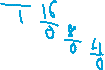 1 16/0 8/0 4/0